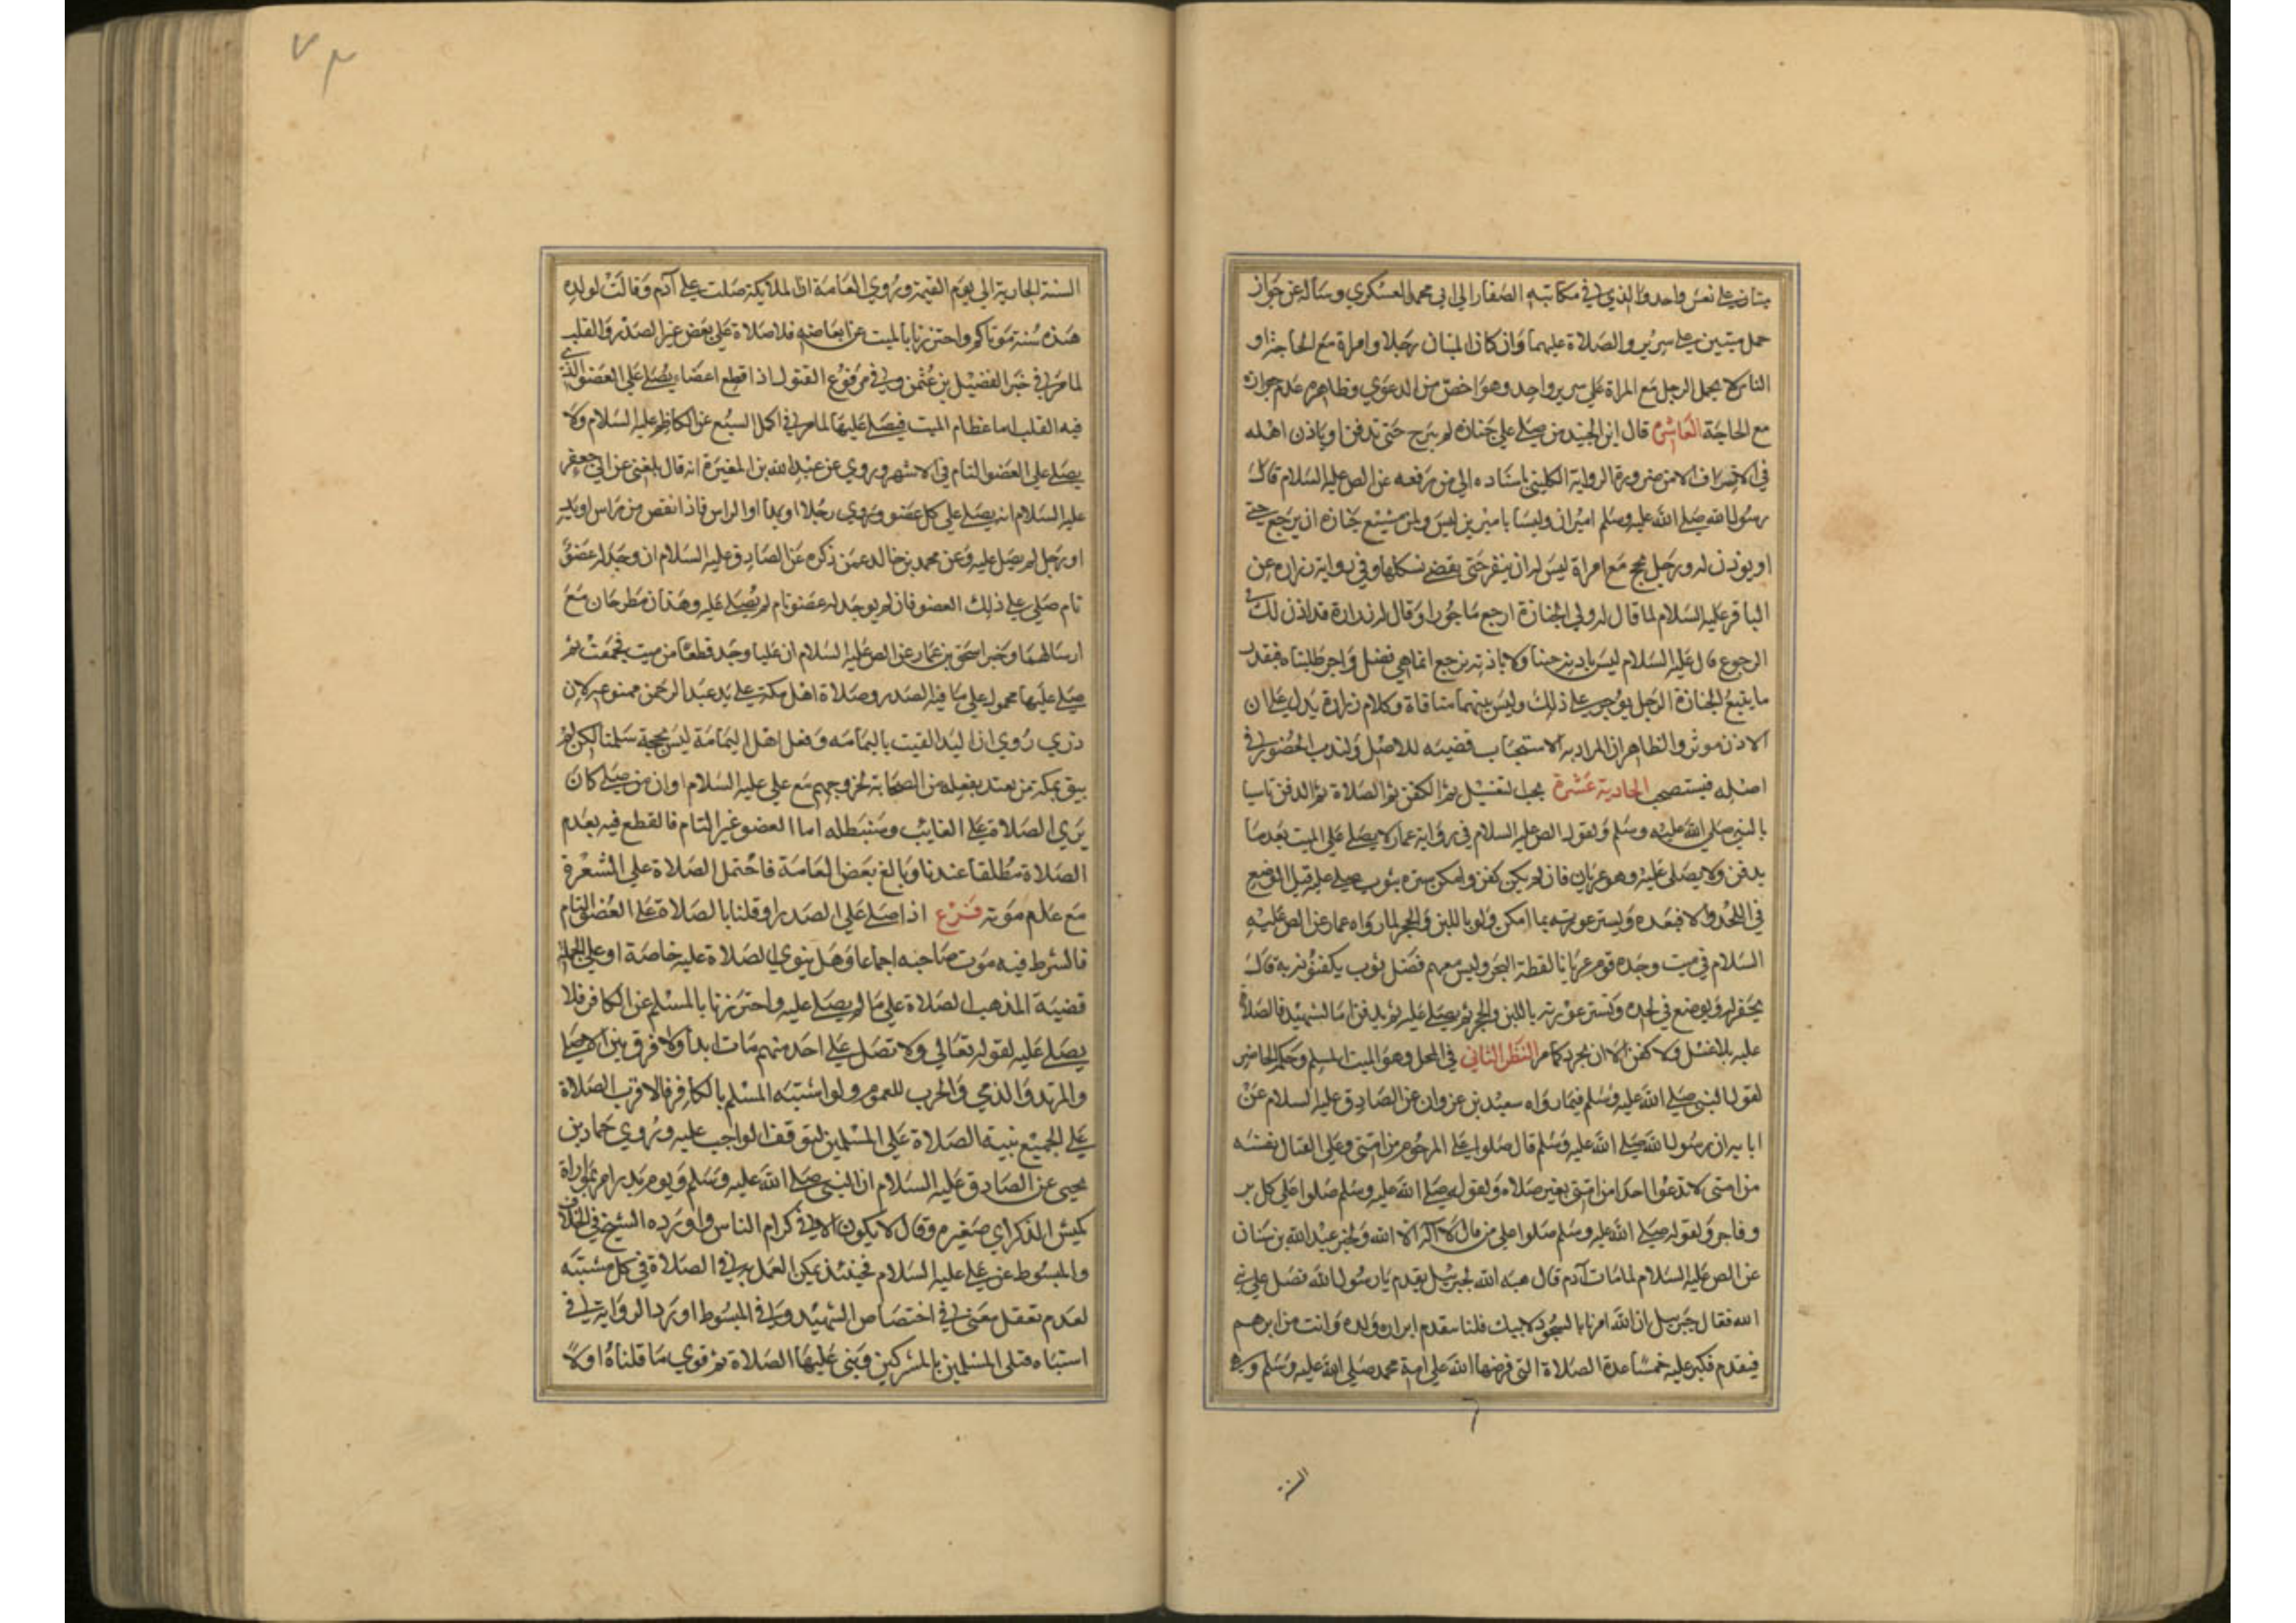 ميتان على نعش واحد والذي في مكاتبه الصفار الى ابي محمد العسكري وسأله عن جواز
حمل ميتين على سرير والصلاة عليهما وان كان الميتان رجلا وامراة مع الحاجة او
الناس لا يحمل الرجل مع المراة على سرير واحد وهو اخص من الدعوي وظاهره عدم جوازه
مع الحاجة العاشرة قال ابن الجنيد من صلى على جنازة لم يبرح حتى تدفن او ياذن اهله
في الانصراف الا من ضرورة لرواية الكليني باسناده الى من رفعه عن الص عليه السلام قال
رسول الله صلى الله عليه وسلم اميران وليسا باميرين ليس لمن شيع جنازة ان يرجع حتى
او يوذن له ورجل يحج مع امراة ليس له ان ينفر حتى يقضي نسكها وفي رواية زرارة عن
الباقر عليه السلام لما قال له ولي الجنازة ارجع ماجورا وقال له زرارة قد اذن لك في
الرجوع قال عليه السلام ليس باذنه جئنا ولا باذنه نرجع انما هي فضل واجر طلبناه فبقدر
ما يتبع الجنازة الرجل يوجر على ذلك وليس بينهما منافاة وكلام زرارة يدل على ان
الاذن موثر والظاهر ان المراد به الاستحباب قضيته للاصل ولندب الحضور في
اصله فيستصحب الحادية عشرة يجب لتغسيل ثم الكفن ثم الصلاة ثم الدفن تاسيا
بالنبي صلى الله عليه وسلم ولقول الص عليه السلام في رواية عمار لا يصلى على الميت بعد ما
يدفن ولا يصلى عليه وهو عريان فان لم يكن كفن وامكن ستره بثوب صلى عليه قبل الوضع
في اللحد والا فبعده وليستر عورته بما امكن ولو باللبن والحجر لما رواه عمار عن الص عليه
السلام في ميت وجده قوم عريانا لقطه البحر وليس معهم فضل ثوب يكفنونه به قال
يحفر له ويوضع في لحده وتستر عورته باللبن والحجر ثم يصلى عليه ثم يدفن اما الشهيد فالصلاة
عليه بلا غسل ولا كفن الا ان يجرد كما مر النظر الثاني في المحل وهو الميت المسلم وحكم الحاضر
لقول النبي صلى الله عليه وسلم فيما رواه سعيد بن غزوان عن الصادق عليه السلام عن
ابايه ان رسول الله صلى الله عليه وسلم قال صلوا على المرجوم من امتي وعلى القتال نفسه
من امتي لا تدعوا احدا من امتي بغير صلاة ولقوله صلى الله عليه وسلم صلوا على كل بر
وفاجر ولقوله صلى الله عليه وسلم صلوا على من قال لا اله الا الله ولخبر عبد الله بن سنان
عن الص عليه السلام لما مات آدم قال هبه الله لجبريل تقدم يا رسول الله فصل على نبي
الله فقال جبرييل ان الله امرنا بالسجود لابيك فلسنا نتقدم ابرار ولده وانت من ابرهم
فتقدم فكبر عليه خمسا عدة الصلاة التي فرضها الله على امة محمد صلى الله عليه وسلم وهي
السنة
٧٣
السنة الجارية الى يوم القيمة وروي العامة ان الملايكة صلت على آدم وقالت لولده
هذه سنة موتاكم واحترزنا بالميت عن ابعاضه فلا صلاة على بعض غير الصدر والقلب
لما مر في خبر الفضيل بن عثمن وفي مرفوع القتول اذا قطع اعضاء يصلى على العضو الذي
فيه القلب اما عظام الميت فيصلى عليها لما مر في اكل السبع عن الكاظم عليه السلام ولا
يصلى على العضو التام في الاشهر وروي عن عبد الله بن المغيرة انه قال بلغني عن ابي جعفر
عليه السلام انه يصلى على كل عضو وروي رجلا او يدا او الراس فاذا نقص من راس او يد
او رجل لم يصل عليه وعن محمد بن خالد عمن ذكره عن الصادق عليه السلام ان وجد له عضو
تام صلى على ذلك العضو فان لم يوجد له عضو تام لم يصل عليه وهذان مطرحان مع
ارسالهما وخبر اسحق بن عمار عن الص عليه السلام ان عليا وجد قطعا من ميت فجمعت ثم
صلى عليها محمول على ما فيه الصدر وصلاة اهل مكة على يد عبد الرحمن ممنوعه لان
روي ان اليد القيت باليمامه وفعل اهل اليمامة ليس بحجة سلمنا لكن لم
يبق بمكة من يعتد بفعله من الصحابة لخروجهم مع علي عليه السلام او ان من صلى كان
يرى الصلاة على الغايب وسنبطله اما العضو غير التام فالقطع فيه بعدم
الصلاة مطلقا عندنا وبالغ بعض العامة فاحتمل الصلاة على الشعرة
مع علم موته فرع اذا صلى على الصدر او قلنا بالصلاة على العضو التام
فالشرط فيه موت صاحبه اجماعا وهل ينوي الصلاة عليه خاصة او على الجملة
قضية المذهب الصلاة على ما لم يصلى عليه واحترزنا بالمسلم عن الكافر فلا
يصلى عليه لقوله تعالى ولا تصل على احد منهم مات ابدا ولا فرق بين الاصلي
والمرتد والذمي والحرب للعموم ولو اشتبه المسلم بالكافر فالاقرب الصلاة
على الجميع بنية الصلاة على المسلمين لتوقف الواجب عليه وروي حماد بن
يحيى عن الصادق عليه السلام ان النبي صلى الله عليه وسلم ويوم بدر امر بمواراة
كميش الذكر اي صغيره وقال لا يكون الا في كرام الناس واورده الشيخ في الخلاف
والمبسوط عن علي عليه السلام فحينئذ يمكن العمل به في الصلاة في كل مشتبه
لعدم تعقل معنى في اختصاص الشهيد وفي المبسوط اورد الرواية في
استباه قتلى المسلمين بالمشركين وبنى عليها الصلاة ثم قوي ما قلناه اولا